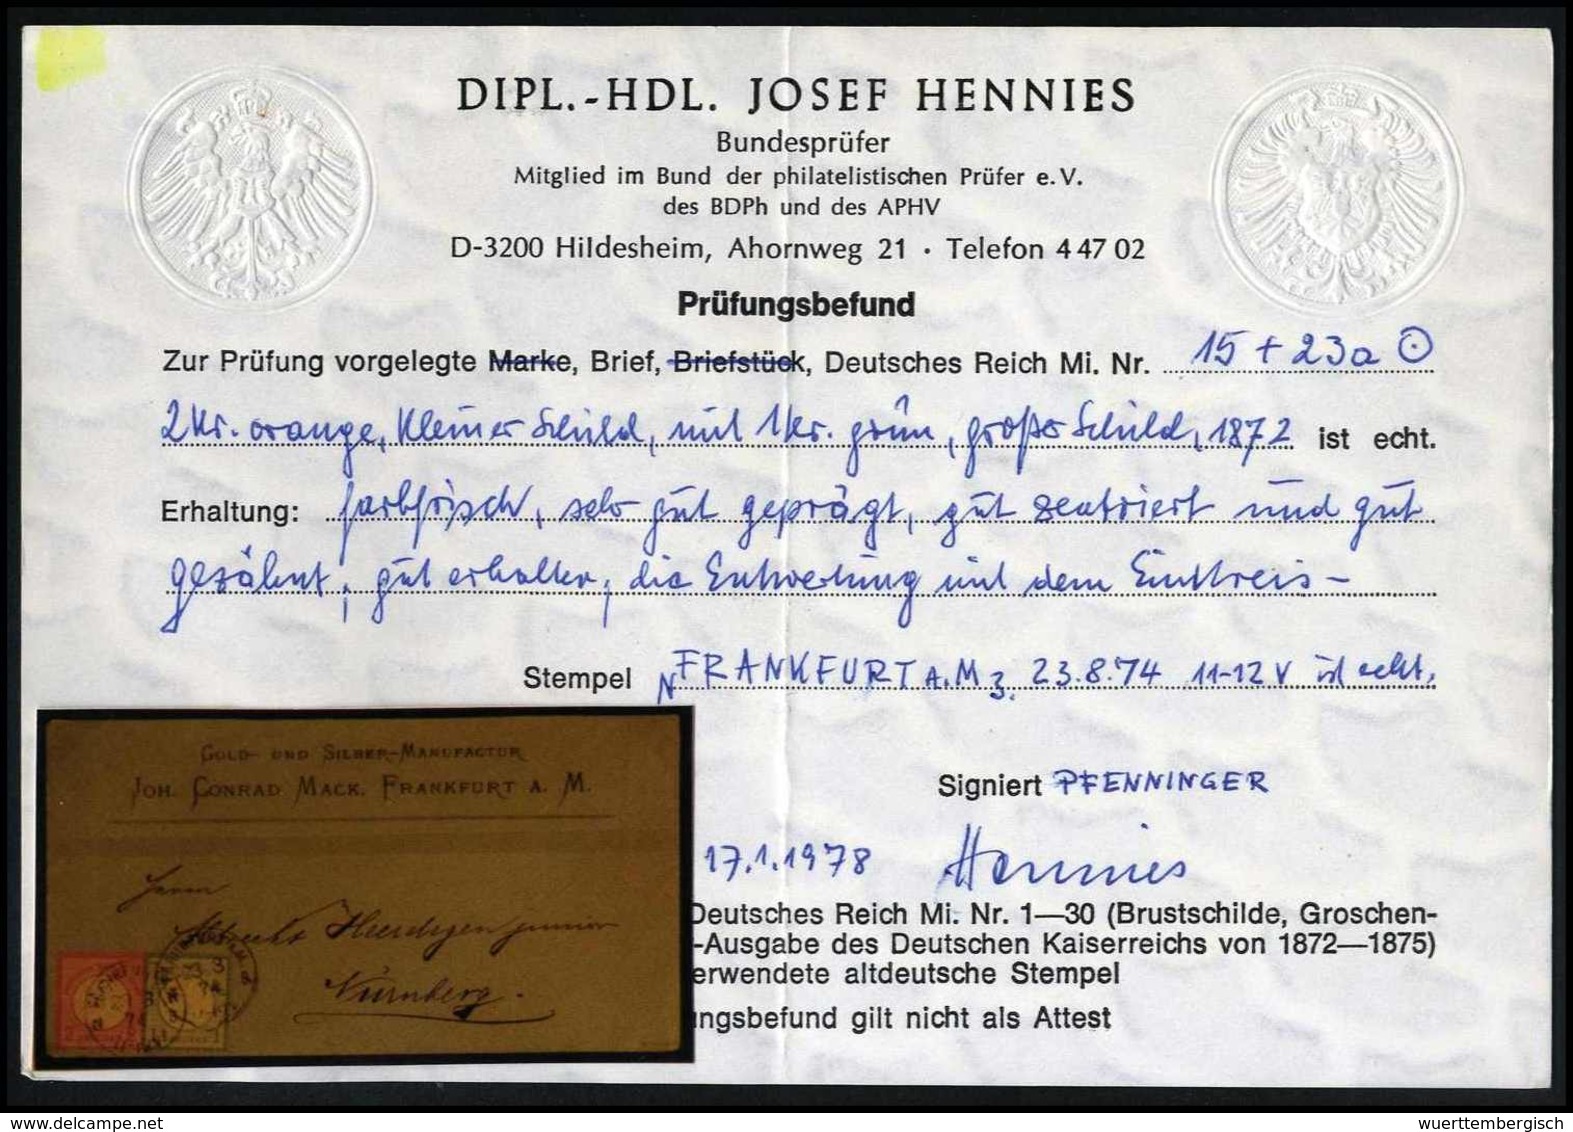 DIPL.-HDL. JOSEF HENNIES
Bundesprüfer
Mitglied im Bund der philatelistischen Prüfer e. V.
des BDPh und des APHV
D-3200 Hildesheim, Ahornweg 21 · Telefon 4 47 02
Prüfungsbefund
Zur Prüfung vorgelegte Marke, Brief, Briefstück, Deutsches Reich Mi. Nr. 15 + 23a ⊙
2 Kr. orange, kleiner Schild, mit 1 Kr. grün, großer Schild, 1872 ist echt.
Erhaltung: farbfrisch, sehr gut geprägt, gut zentriert und gut
gezähnt, gut erhalten, die Entwertung mit dem Einkreis-
Stempel FRANKFURT A. M 3. 23.8.74 11-12 V ist echt.
GOLD- UND SILBER-MANUFACTUR
JOH. CONRAD MACK. FRANKFURT A. M.
Signiert PFENNINGER
17.1.1978 Hennies
Herrn
junior
Nürnberg.
Deutsches Reich Mi. Nr. 1—30 (Brustschilde, Groschen-
-Ausgabe des Deutschen Kaiserreichs von 1872—1875)
erwendete altdeutsche Stempel
ungsbefund gilt nicht als Attest
wuerttembergisch